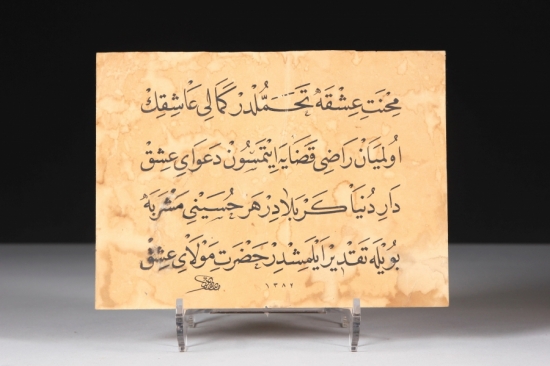 محنت عشقه تحملدر كمالی عاشقك
اولمیان راضی قضایه ایتمسون دعوای عشق
دار دنیا كربلادر هر حسینی مشربه
بویله تقدیر ایلمشدر حضرت مولای عشق
١٣٨٢